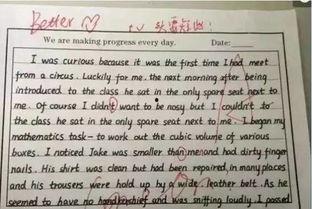 Better
We are making progress every day. Date:
I was curious because it was the first time I had meet
from a circus. Luckily for me. the next morning after being
introduced to the class he sat in the only spare seat next to
me. Of course I didn't want to be nosy but I couldn't to
the class he sat in the only spare seat next to me. I began my
mathematics task- to work out the cubic volume of various
boxes. I noticed Jake was smaller than me and had dirty finger
nails. His shirt was clean but had been repaired, in many places
and his trousers were hold up by a wide, leather belt. As he
seemed to have no handkerchief and was sniffing loudly. I passed